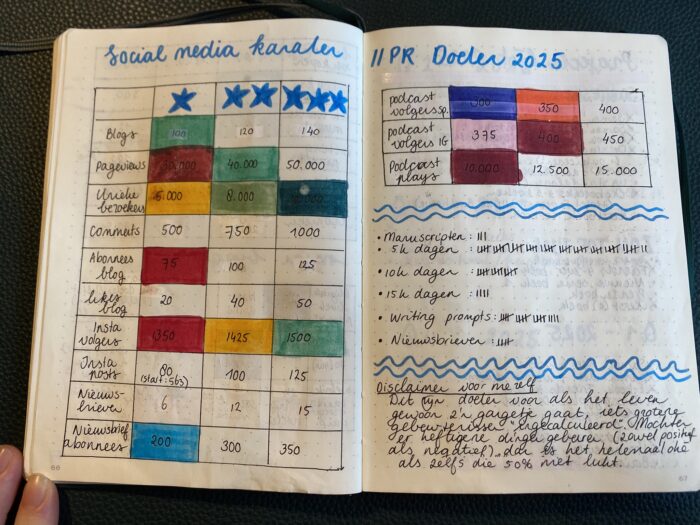 Social media kanalen
Blogs 100 120 140
Pageviews 30.000 40.000 50.000
Unieke bezoekers 5.000 8.000
Comments 500 750 1000
Abonnees blog 75 100 125
likes blog 20 40 50
Insta volgers 1350 1425 1500
Insta posts 80 (start: 563) 100 125
Nieuwsbrieven 6 12 15
Nieuwsbrief abonnees 200 300 350
66
// PR Doelen 2025
podcast volgers sp. 300 350 400
podcast volgers IG 375 400 450
Podcast plays 10.000 12.500 15.000
• Manuscripten:
• 5k dagen:
• 10k dagen:
• 15k dagen:
• Writing prompts:
• Nieuwsbrieven:
Disclaimer voor mezelf
Dit zijn doelen voor als het leven
gewoon z'n gangetje gaat, iets grotere
gebeurtenissen "ingecalculeerd". Mochten
er heftigere dingen gebeuren (zowel positief
als negatief) dan is het helemaal oké
als zelfs die 50% niet lukt.
67